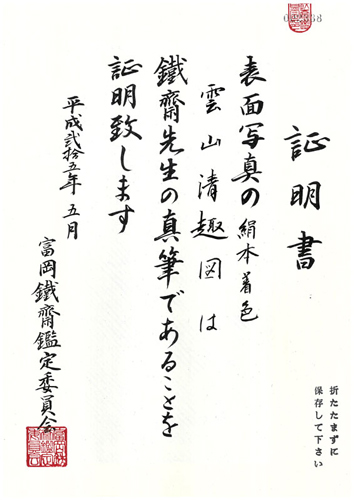 証明書
表面写真の 絹本着色
雲山清趣図は
鐵齋先生の真筆であることを
証明致します
平成弐拾五年 五月
富岡鐵齋鑑定委員会
折たたまずに
保存して下さい